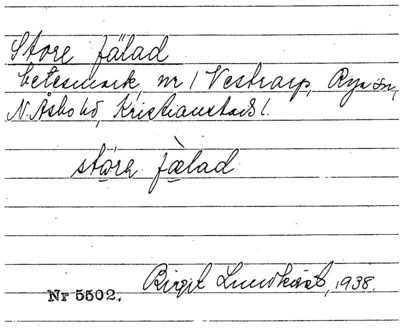 Store fälad
betesmark, nr 1 Vestrarp, Rya sn,
N. Åsbo hd, Kristianstads l.
störe fælad
Birgit Lundkvist, 1938.
Nr 5502.